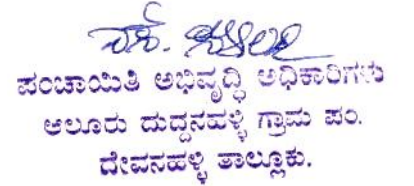 ಪಂಚಾಯಿತಿ ಅಭಿವೃದ್ಧಿ ಅಧಿಕಾರಿಗಳು
ಆಲೂರು ದುದ್ದನಹಳ್ಳಿ ಗ್ರಾಮ ಪಂ.
ದೇವನಹಳ್ಳಿ ತಾಲ್ಲೂಕು.